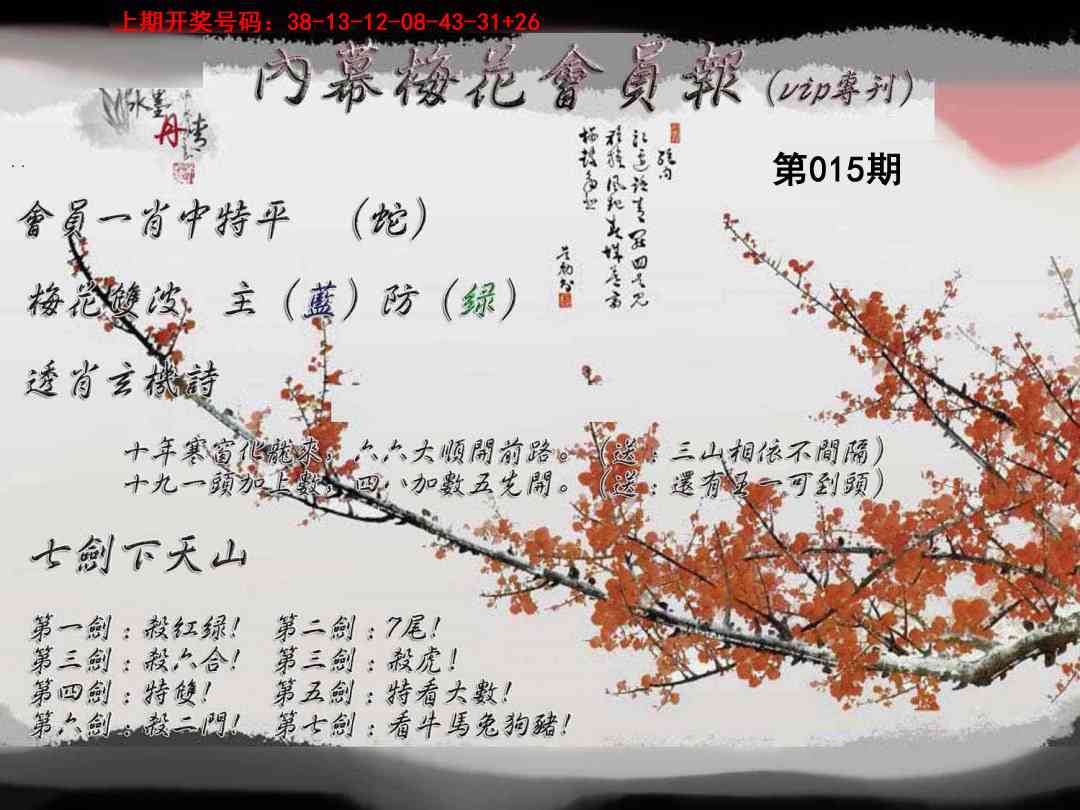 上期开奖号码：38-13-12-08-43-31+26
內幕梅花會員報（vip專刊）
水墨
丹青
第015期
會員一肖中特平　（蛇）
梅花雙波　主（藍）防（绿）
透肖玄機詩
十年寒窗化龍來，六六大順開前路。（送：三山相依不間隔）
十九一頭加上數，四八加數五先開。（送：還有五一可到頭）
七劍下天山
第一劍：殺紅绿！　第二劍：7尾！
第三劍：殺六合！　第三劍：殺虎！
第四劍：特雙！　第五劍：特看大數！
第六劍：殺二門！　第七劍：看牛馬兔狗豬！